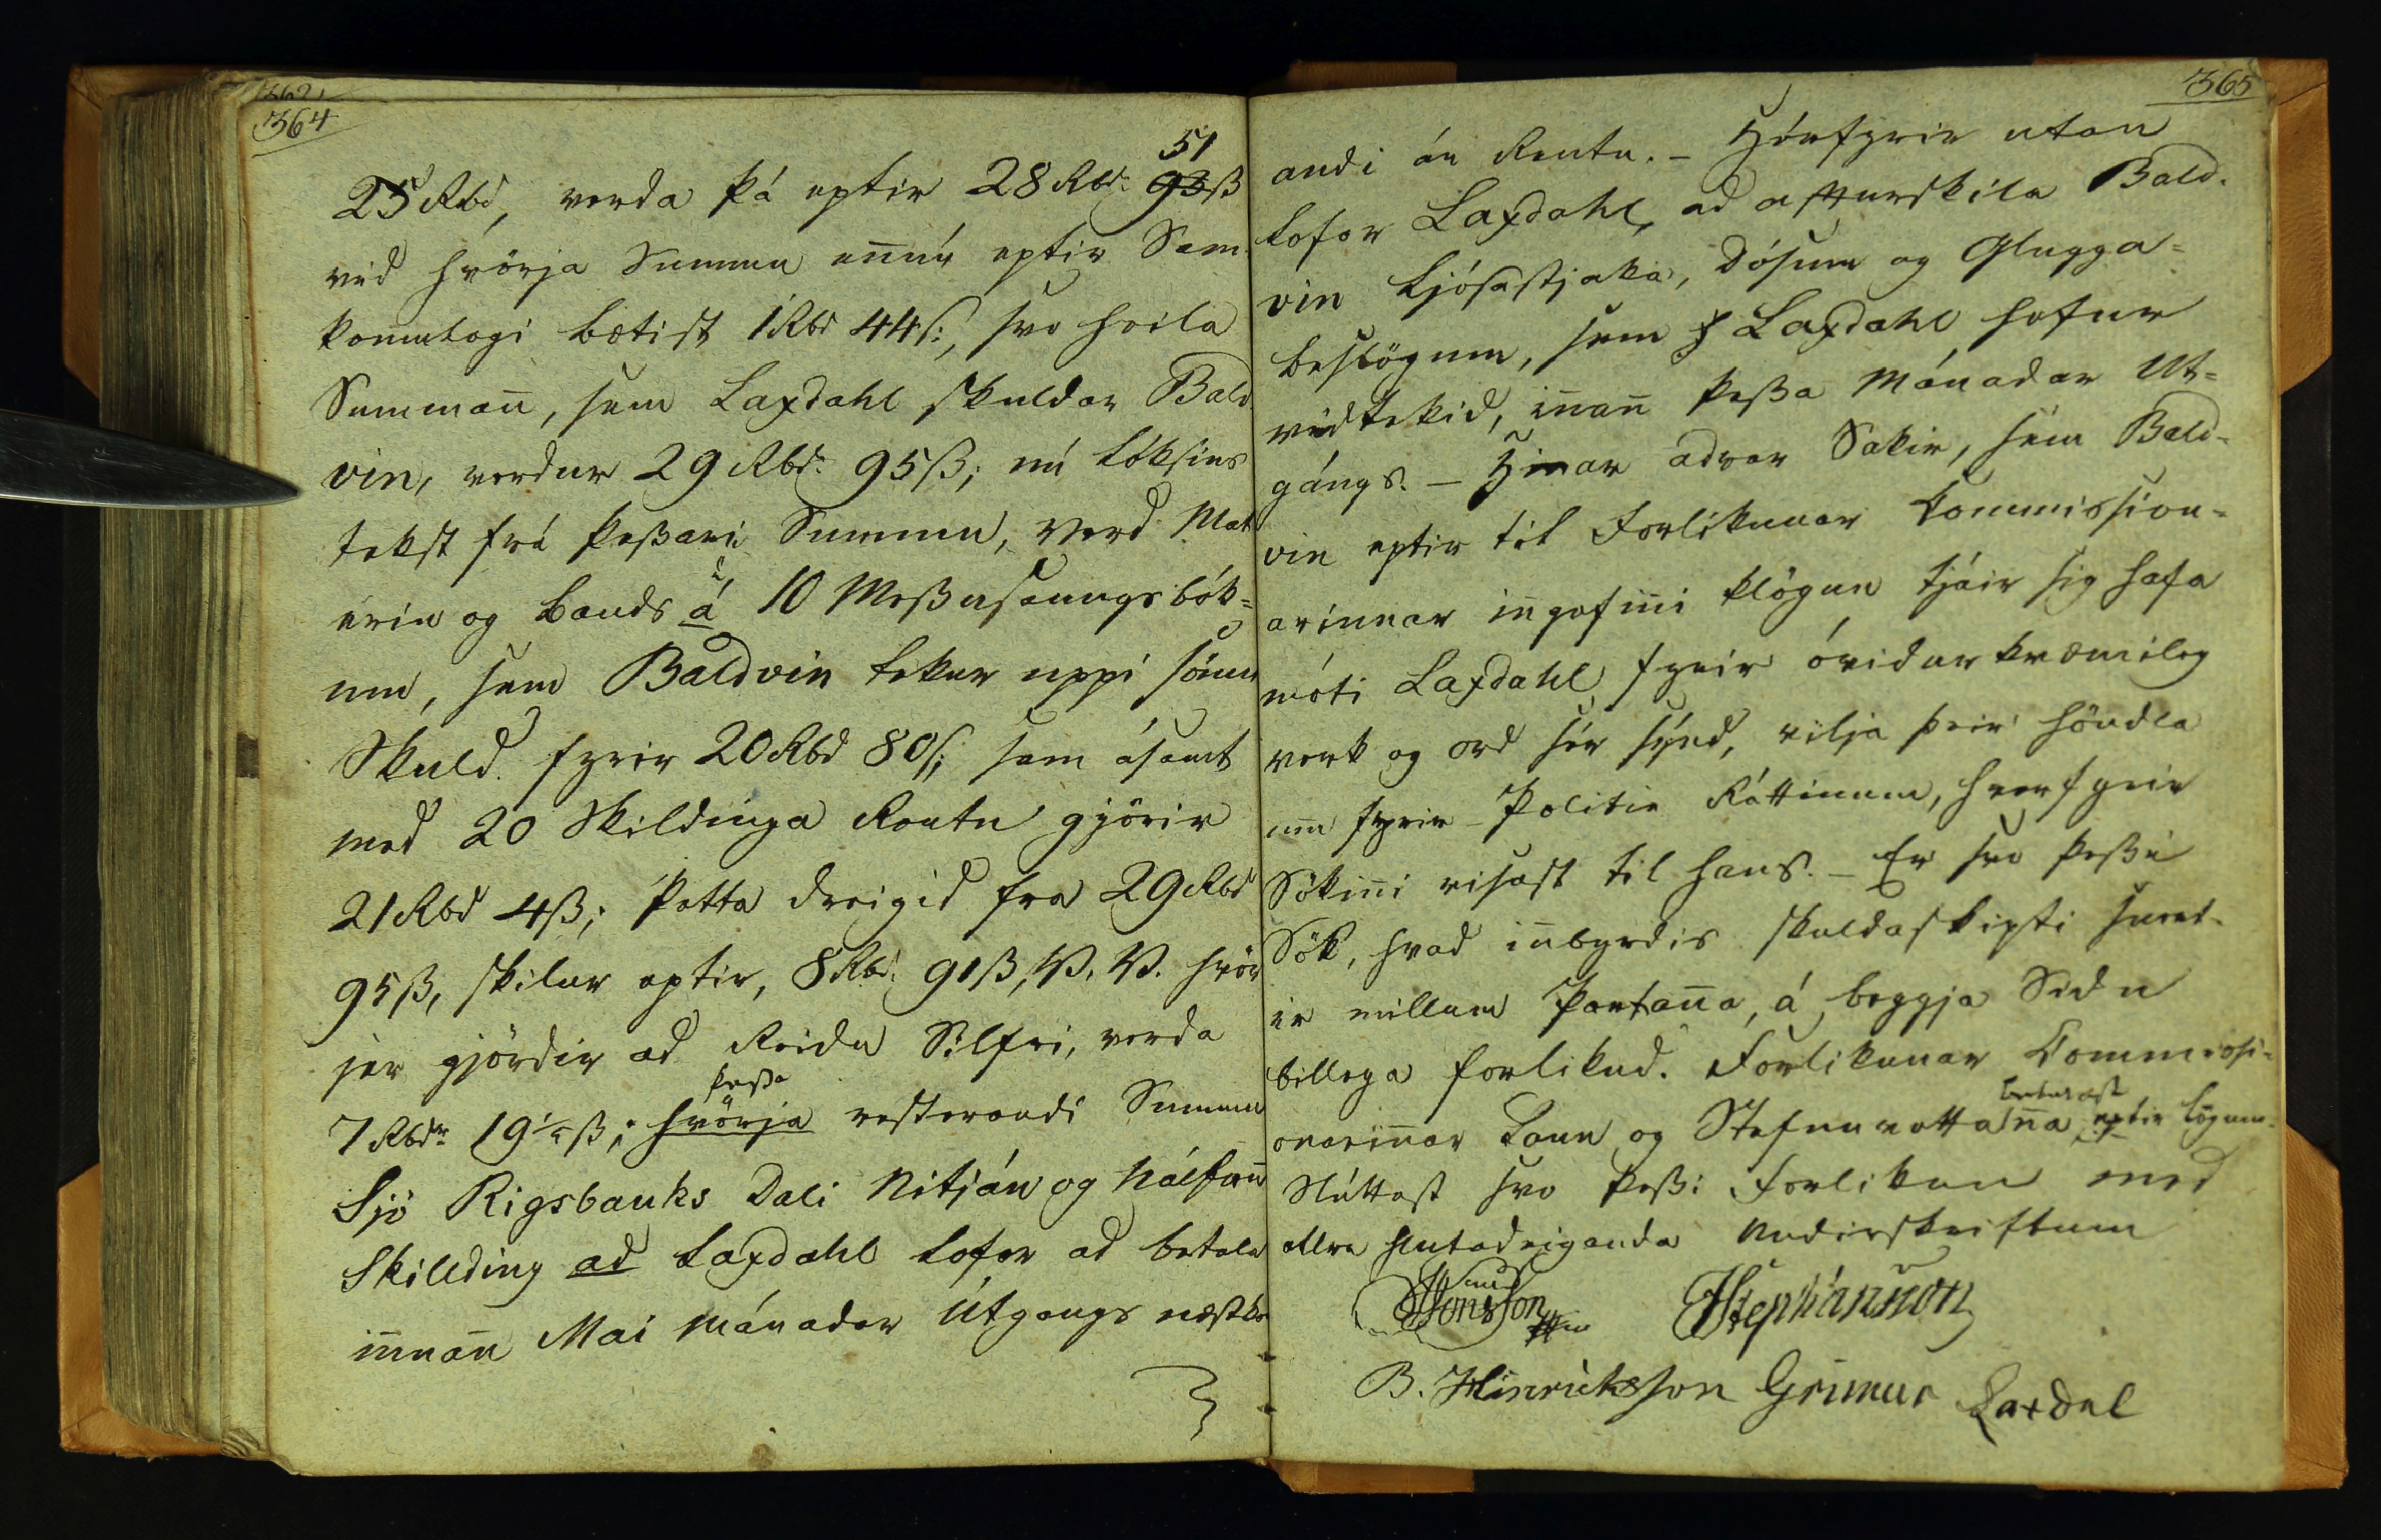 362
364
51
25 Rbd, verda þá eptir 28 Rbd. 93ß
vid hvörja Summu ennú eptir Sam
komulagi bætist 1 Rbd 44ß;, svo heila
Summan̅, sem Laxdahl skuldar Bald
vin, verdur 29 Rbd. 95ß; nú loksins
tekst frá þeßari Summu, verd Mat
erín og bands á 10 Meßusaungsbók=
um, sem Baldvin tekur uppí sömu
Skuld. fyrir 20 Rbd 80ß; sem ásamt
med 20 Skildinga Rentu gjörir
21 Rbd 4ß; Þetta dreigid fra 29 Rbd
95ß, skilur eptir, 8 Rbd. 91ß, V. V. hvör
jer gjördir ad Reidu Silfri, verda
þeßa
7 Rbdr 19½ß; hvörja resterandi Summu
Sjö Rigsbanks Dali Nitján og hálfan̅
Skillding ad Laxdahl lofar ad betala
in̅nan̅ Mai Mánadar Útgangs næstko
365
andi án Rentu. – Hérfyrir utan
lofar Laxdahl, ad afturskila Bald.
vin Ljósastjaka, Dósum og Glugga=
beslögum, sem Laxdahl hefur
vidtekid, in̅an̅ þeßa Mánadar Ut=
gángs. – Hinar adrar Sakir, sem Bald-
vin eptir til Forlikunar Commission=
arinnar in̅gefin̅i klögun tjáir sig hafa
móti Laxdahl, fyrir óvidurkvæmileg
verk og ord sér sýnd, vilja þeir höndla
um fyrir Politie Réttinum, hvarfyrir
Sökin̅i visast til hans. – Er svo þeßi
Sök, hvad in̅byrdis skuldaskipti snert-
ir millum Partan̅a, á beggja Sidu
billega forlikud. Forlikunar Commissi=
betalast
onarin̅ar Laun og Stefnuvottan̅a eptir Lögum.
Slúttast svo þeßi Forlikun med
allra hlutadeiganda Undirskriftum
Jonsson Stephánsson
B. Hinriksson Grimur Laxdal